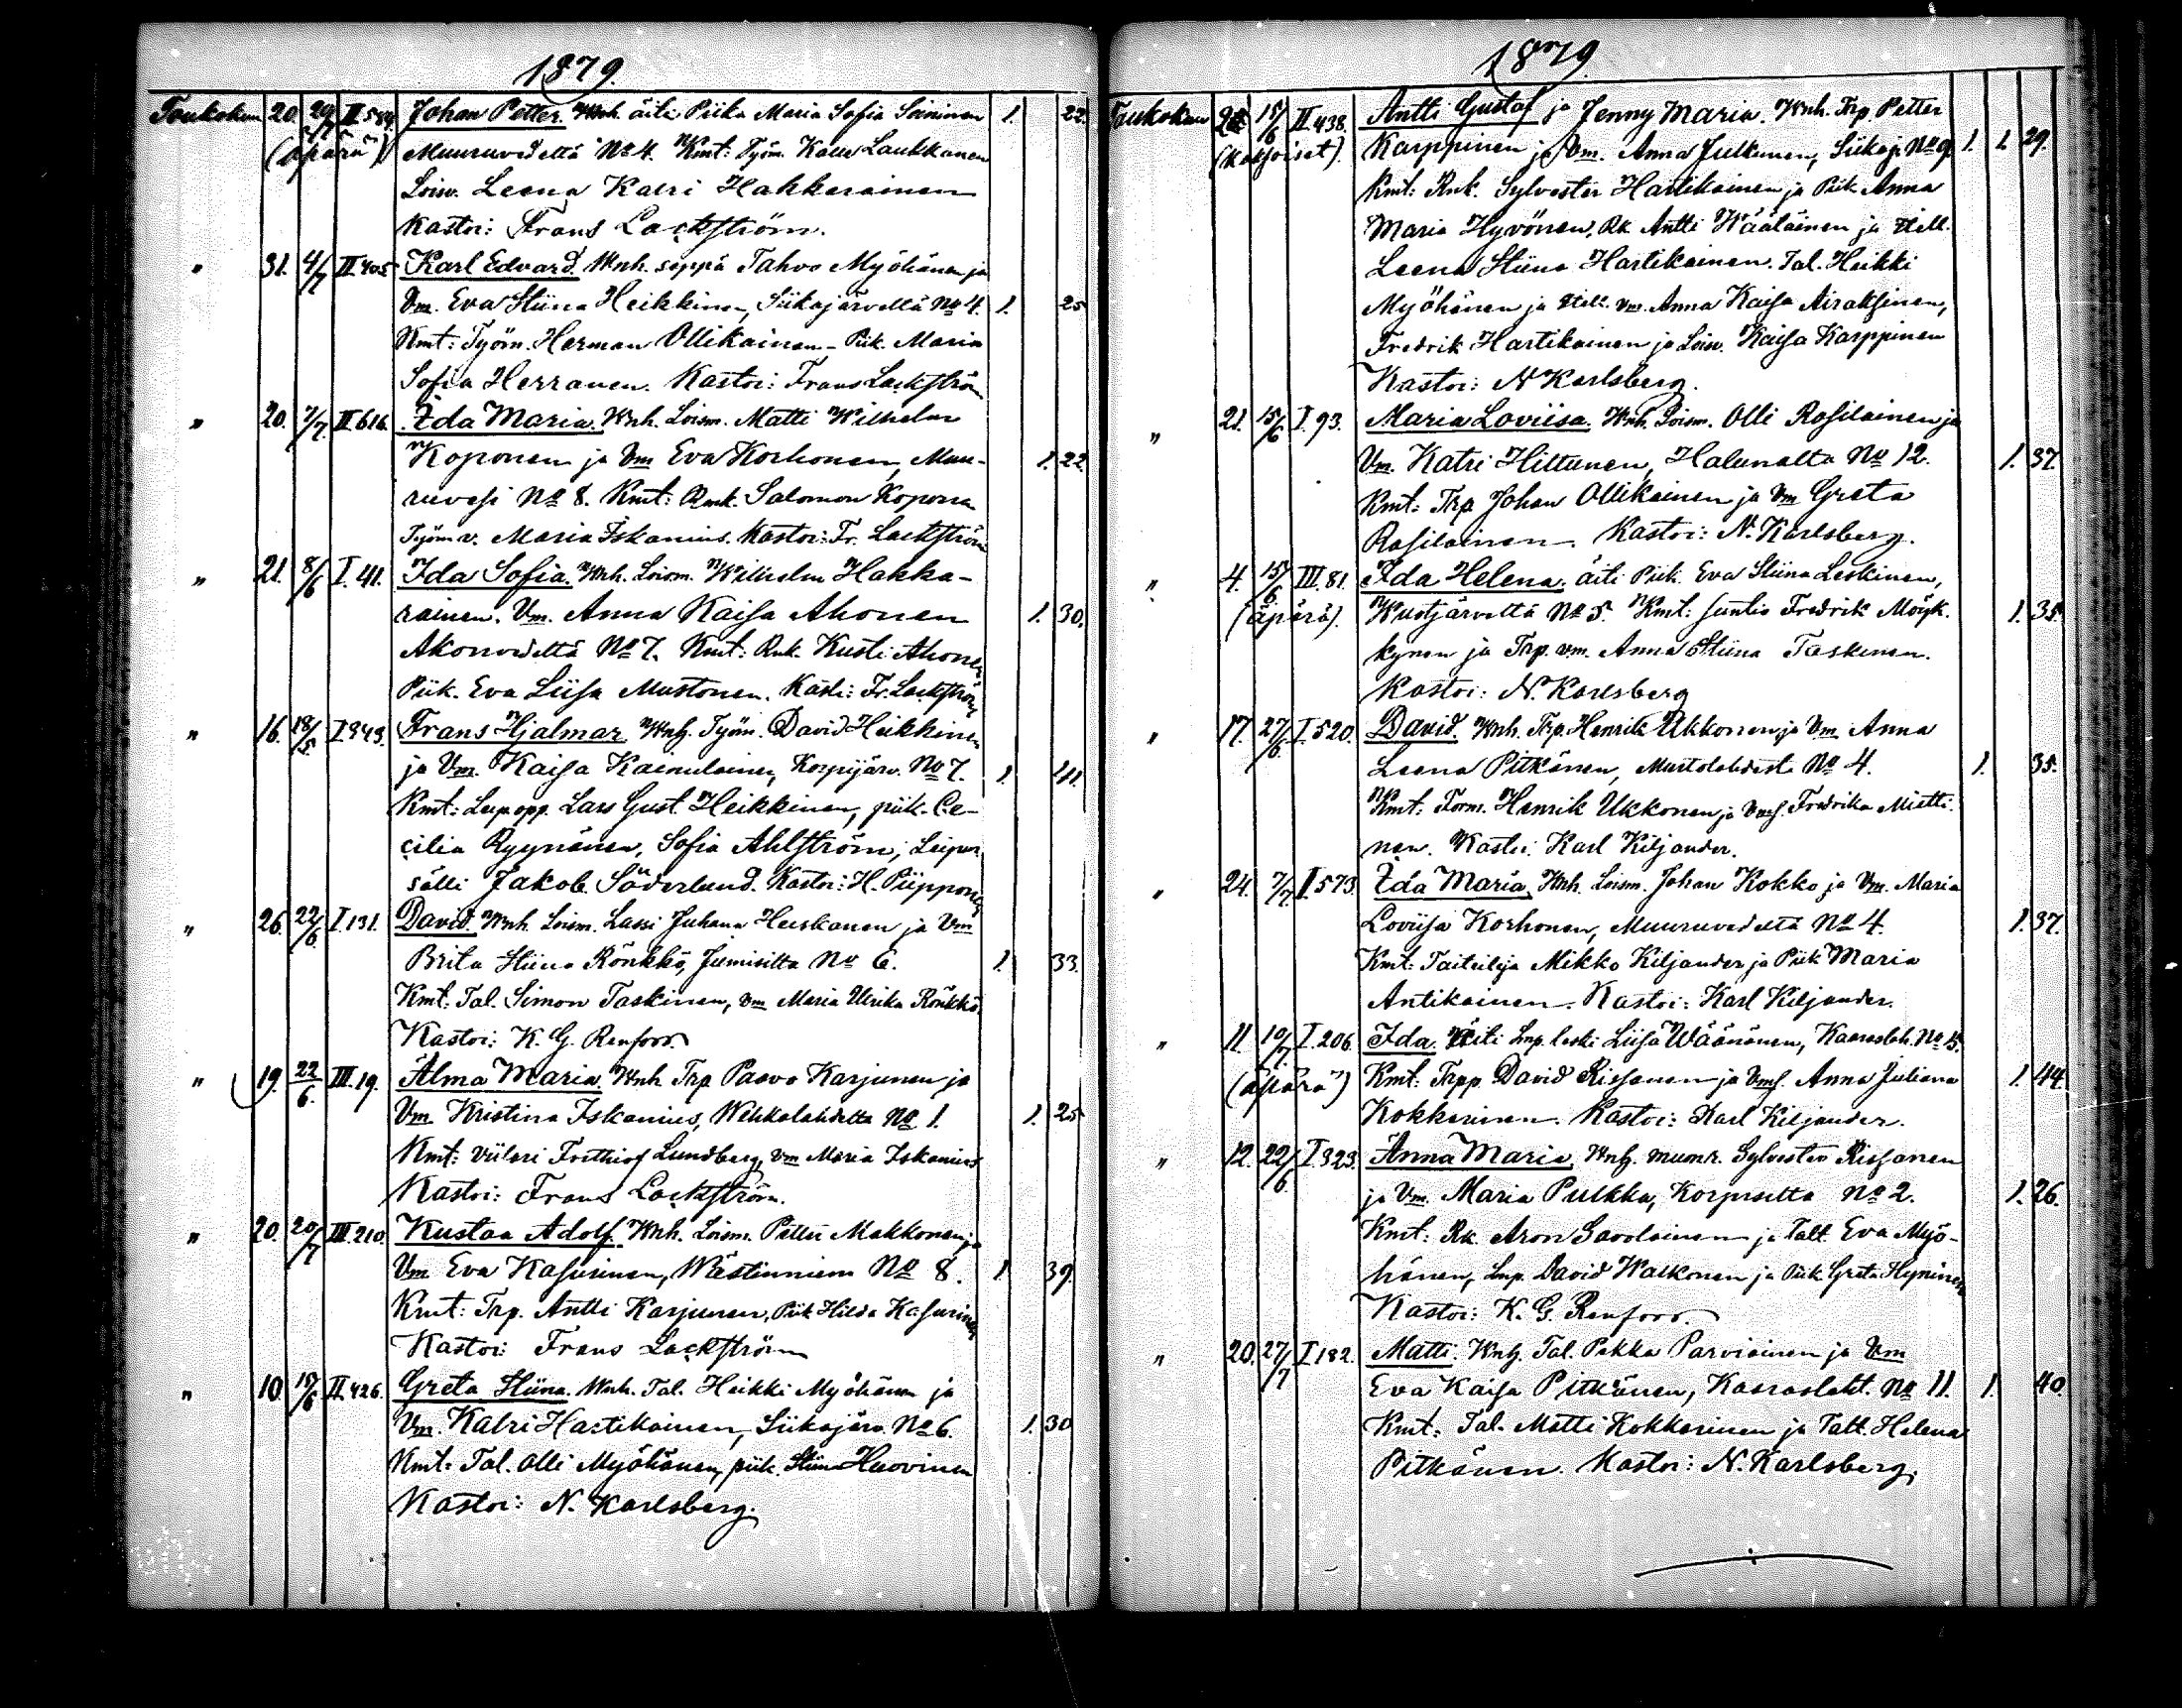 1879.
Toukokuu 20. 29/7 II 584. Johan Petter. Wnh. äiti Piika Maria Sofia Soininen 1. 22.
(äpärä) Muuruvedeltä No 4. Kmt: Työm. Kalle Laukkanen
Loisv. Leena Katri Hakkarainen
Kastoi: Frans Lackström.
" 31. 4/7 II 405 Karl Edvard. Wnh. seppä Tahvo Myöhänen ja
Vm. Eva Stiina Heikkinen, Siikajärveltä No 4. 1. 25
Kmt: Työm. Herman Ollikainen - Piik. Maria
Sofia Herranen. Kastoi: Frans Lackström
" 20. 7/7. II 616. Ida Maria. Wnh. Loism. Matti Wilhelm
Koponen ja Vm Eva Korhonen, Muu-
ruvesi No 8. Kmt: Rnk. Salomon Koponen 1. 22
Työm v. Maria Iskanius. Kastoi: Fr. Lackström
" 21. 8/6 I. 41. Ida Sofia. Wnh. Loism. Wilhelm Hakka-
rainen. Vm. Anna Kaisa Ahonen 1. 30.
Akonvedeltä No 7. Kmt: Rnk. Kusti Ahonen
Piik. Eva Liisa Mustonen. Kasti: Fr. Lackström
" 16. 18/5 I 343. Frans Hjalmar. Wnh. Työm. David Heikkinen
ja Vm. Kaisa Kaenulainen, Korpijärv. No 7. 1. 41.
Kmt: Leip. opp. Lars Gust. Heikkinen, piik. Ce-
cilia Ryynänen, Sofia Ahlström; Leipur.
sälli Jakob Söderlund. Kastoi: H. Piipponen
" 26. 22/6 I. 131. David. Wnh. Loism. Lassi Juhana Heiskanen ja Vm
Brita Stiina Rönkkö, Jumisilta No 6. 1. 33.
Kmt: Tal. Simon Taskinen, vm Maria Ulrika Rönkkö.
Kastoi: K. G. Renfors.
" 19. 22/6. III. 19. Alma Maria. Wnh Trp Paavo Karjunen ja
Vm Kristina Iskanius, Wehkalahdelta No 1. 1. 25
Kmt: viilari Frithiof Lundberg, vm Maria Iskanius
Kastoi: Frans Lackström.
" 20. 20/7 III. 210. Kustaa Adolf. Wnh. Loism. Petter Makkonen ja
Vm Eva Kasurinen, Wästinniem No 8. 1. 39.
Kmt: Trp. Antti Karjunen, Piik Hilda Kasurinen
Kastoi: Frans Lackström
" 10. 15/6 II. 426. Greta Stiina. Wnh. Tal. Heikki Myöhänen ja
Vm. Katri Hartikainen, Siikajärv. No 6. 1. 30
Kmt: Tal. Olli Myöhänen, piik. Stiina Huovinen
Kastoi: N. Karlsberg.
1879.
Toukokuu 15/6 II. 438. Antti Gustaf ja Jenny Maria. Wnh. Trp. Petter
(kaksoiset). Karppinen ja Vm. Anna Julkunen, Siikaj. No 9. 1. 1. 29.
Kmt: Rnk. Sylvester Hartikainen ja Piik Anna
Maria Hyvönen, Rk Antti Wäätäinen ja
Leena Stiina Hartikainen. Tal. Heikki
Myöhänen ja vm. Anna Kaisa Airaksinen,
Fredrik Hartikainen ja Loisv. Kaisa Karppinen
Kastoi: N Karlsberg.
" 21. 15/6 I. 93. Maria Loviisa. Wnh. Loism. Olli Rosilainen ja
Vm. Katri Hiltunen, Halunalta No 12. 1. 37.
Kmt: Trp Johan Ollikainen ja Vm Greta
Rasilainen. Kastoi: N. Karlsberg.
" 4. 15/6 III. 81. Ida Helena. äiti Piik. Eva Stiina Leskinen,
(äpärä). Wuotjärveltä No 5. Kmt: suntio Fredrik Möyk- 1. 35.
kynen ja Trp. vm. Anna Stiina Taskinen.
Kastoi: N. Karlsberg
" 17. 27/6. I. 520. David. Wnh. Trp. Henrik Ukkonen ja Vm Anna
Leena Pitkänen, Martolahdesta No 4. 1. 35.
Kmt: Torm. Henrik Ukkonen ja Fredrika Mietti-
nen. Kastoi: Karl Kiljander.
" 24. 7/7 I 573. Ida Maria. Wnh. Loism. Johan Kokko ja Vm. Maria
Loviisa Korhonen, Muuruvedeltä No 4. 1. 37.
Kmt: Taiteilija Mikko Kiljander ja Piik Maria
Antikainen. Kastoi: Karl Kiljander.
" 11. 10/7 I. 206. Ida. Äiti Lmp. leski Liisa Wäänänen, Kaaraslah. No 15.
(äpärä) Kmt: Trpp. David Rissanen ja Anna Juliana 1. 44.
Kokkarinen. Kastoi: Karl Kiljander.
" 12. 22/6. I. 323. Anna Maria. Wnh. Sylvester Rissanen
ja Vm. Maria Pulkka, Korpisilta No 2. 1. 26.
Kmt: Rk. Aron Savolainen ja Talt. Eva Myö-
hänen, Lmp. David Walkonen ja Piik Greta Hyninen
Kastoi: K. G. Renfors.
" 20. 27/7 I 182. Matti. Wnh. Tal. Pekka Parviainen ja Vm
Eva Kaisa Pitkänen, Kaaraslaht. No 11. 1. 40.
Kmt: Tal. Matti Kokkarinen ja Talt. Helena
Pitkänen. Kastoi: N. Karlsberg.